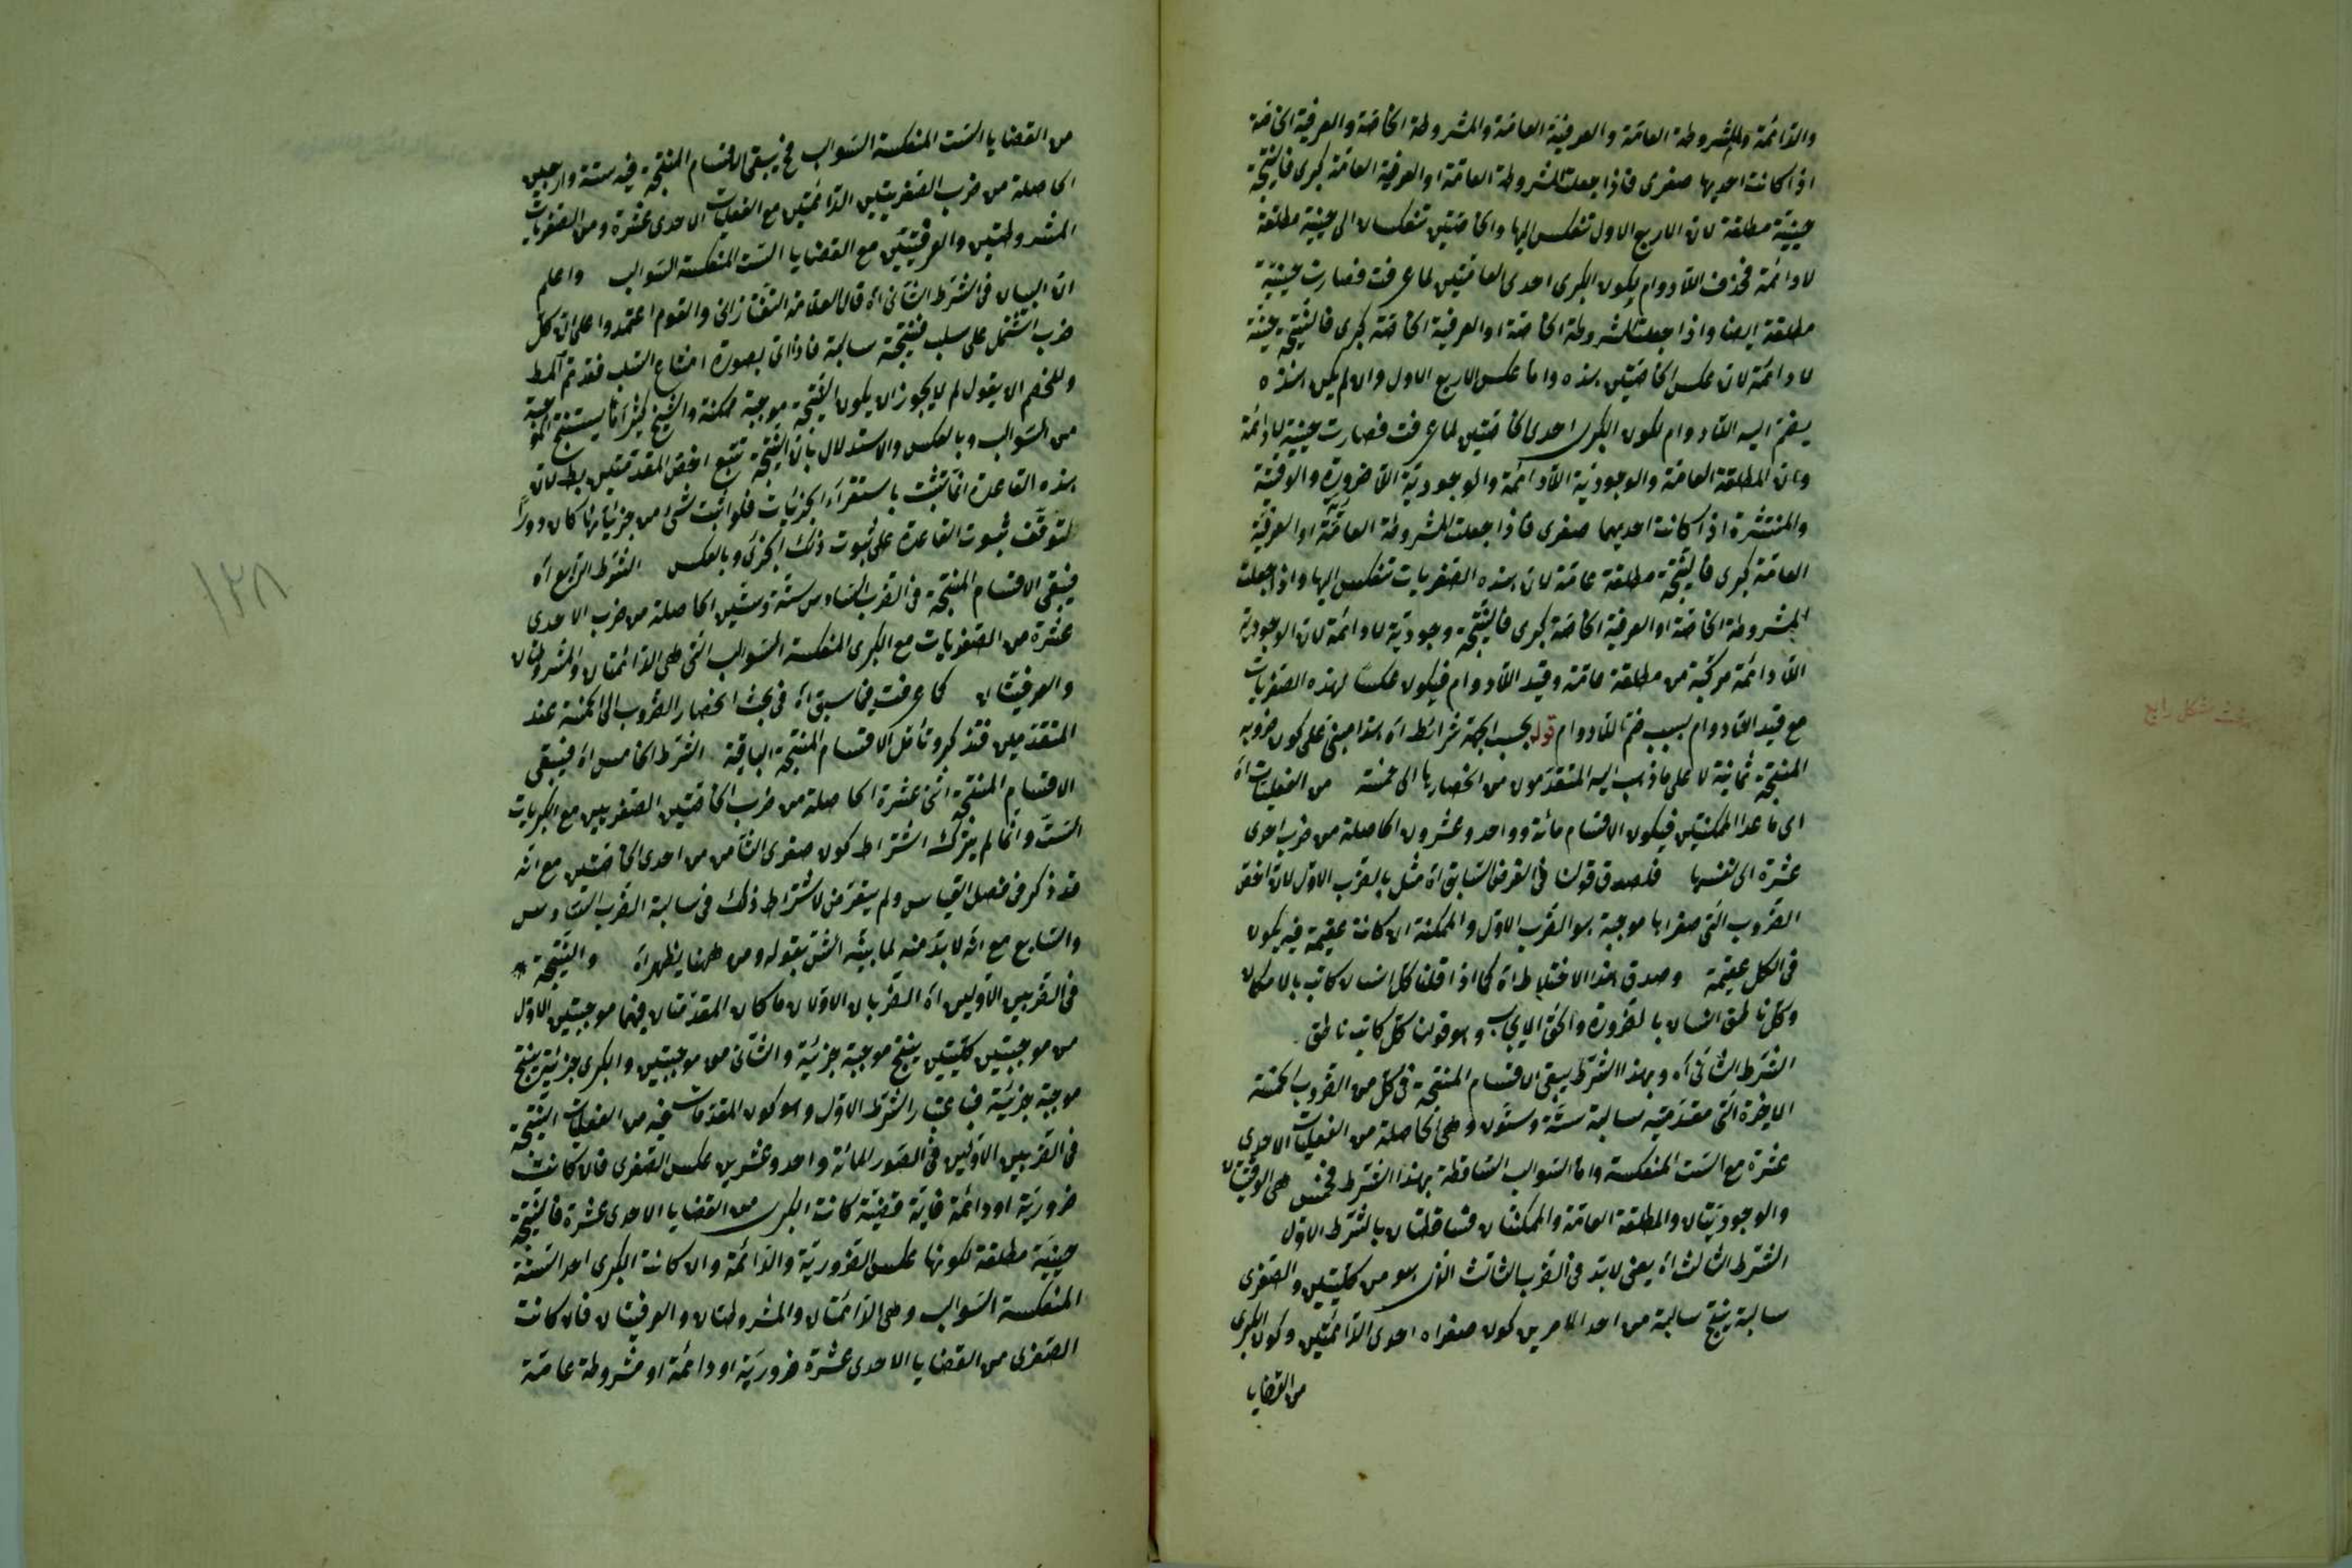 والدائمة والمشروطة العامة والعرفية العامة والمشروطة الخاصة والعرفية الخاصة
اذا كانت احديها صغرى فاذا جعلت المشروطة العامة او العرفية العامة كبرى فالنتيجة
حينية مطلقة لان الاربع الاول تنعكس اليها والخاصتين تنعكسان الى حينية مطلقة
لا دائمة فحذف اللادوام لكون الكبرى احدى العامتين لما عرفت فصارت حينية
مطلقة ايضا واذا جعلت المشروطة الخاصة او العرفية الخاصة كبرى فالنتيجة حينية
لا دائمة لان عكس الخاصتين هذه واما عكس الاربع الاول وان لم يكن هذه
يضم اليه اللادوام لكون الكبرى احدى الخاصتين لما عرفت فصارت حينية لا دائمة
وان المطلقة العامة والوجودية اللادائمة والوجودية اللاضرورية والوقتية
والمنتشرة اذا كانت احديهما صغرى فاذا جعلت المشروطة العامة او العرفية
العامة كبرى فالنتيجة مطلقة عامة لان هذه الصغريات تنعكس اليها واذا جعلت
المشروطة الخاصة او العرفية الخاصة كبرى فالنتيجة وجودية لا دائمة لان الوجودية
اللادائمة مركبة من مطلقة عامة وقيد اللادوام فيكون عكسا لهذه الصغريات
مع قيد اللادوام بسبب ضم اللادوام قوله بحسب الجهة شرائط اه هذا مبنى على كون ضروبه
المنتجة ثمانية لا على ما ذهب اليه المتقدمون من انحصارها الى خمسة من الفعليات اه
اى ما عدا الممكنتين فيكون الاقسام مائة وواحد وعشرون الحاصلة من ضرب احدى
عشرة الى نفسها فلصدق قولنا فى الفرض السابق اه مثل بالضرب الاول لان اخص
الضروب التى صغراها موجبة هو الضرب الاول والممكنة ان كانت عقيمة فيه يكون
فى الكل عقيمة وصدق هذا الاختلاط اه كما اذا قلنا كل انسان كاتب بالامكان
وكل ناطق انسان بالضرورة والحق الايجاب وهو قولنا كل كاتب ناطق
الشرط الثانى اه وبهذا الشرط يبقى الاقسام المنتجة فى كل من الضروب الخمسة
الاخيرة التى مقدمتيه سالبة ستة وستون وهى الحاصلة من الفعليات الاحدى
عشرة مع الست المنعكسة واما السوالب الساقطة بهذا الشرط فخمس هى الوقتيتان
والوجوديتان والمطلقة العامة والممكنتان فساقطتان بالشرط الاول
الشرط الثالث اه يعنى لابد فى الضرب الثالث الذى هو من كليتين والصغرى
سالبة ينتج سالبة من احد الامرين كون صغراه احدى الدائمتين وكون الكبرى
من القضايا
من القضايا الست المنعكسة السوالب فح يبقى الاقسام المنتجة فيه ستة واربعين
الحاصلة من ضرب الصغريتين الدائمتين مع الفعليات الاحدى عشرة ومن الصغريات
المشروطتين والعرفيتين مع القضايا الست المنعكسة السوالب واعلم
ان البيان فى الشرط الثانى اه قال العلامة التفتازانى والقوم اعتمدوا على ان كل
ضرب اشتمل على سلب فنتيجته سالبة فاذا اتى بصورة امتناع السلب فقد تم المط
وللخصم ان يقول لم لا يجوز ان يكون النتيجة موجبة ممكنة والشيخ كثيرا ما يستنتج الموجبة
من السوالب وبالعكس والاستدلال بان النتيجة تتبع اخص المقدمتين بط لان
هذه القاعدة انما تثبت باستقراء الجزئيات فلو اثبت شئ من جزئياتها كان دورا
لتوقف ثبوت القاعدة على ثبوت ذلك الجزئى وبالعكس الشرط الرابع اه
فيبقى الاقسام المنتجة فى الضرب السادس ستة وستين الحاصلة من ضرب الاحدى
عشرة من الصغريات مع الكبرى المنعكسة السوالب التى هى الدائمتان والمشروطتان
والعرفيتان كما عرفت فيما سبق اه فى بحث انحصار الضروب الى الخمسة عند
المتقدمين فتذكر وتأمل الاقسام المنتجة الباقية الشرط الخامس اه فيبقى
الاقسام المنتجة اثنى عشرة الحاصلة من ضرب الخاصتين الصغريين مع الكبريات
الست وانما لم يترك اشتراط كون صغرى الثامن من احدى الخاصتين مع انه
قد ذكر فى فصل القياس ولم يتعرض لاشتراط ذلك فى سالبة الضرب السادس
والسابع مع انه لابد منه لما بينه الش بقوله ومن ههنا يظهر اه والنتيجة
فى الضربين الاولين اه الضربان الاولان ما كان المقدمتان فيهما موجبتين الاول
من موجبتين كليتين ينتج موجبة جزئية والثانى من موجبتين والكبرى جزئية ينتج
موجبة جزئية فباعتبار الشرط الاول وهو كون المقدمات فيه من الفعليات النتيجة
فى الضربين الاولين فى الصور المائة واحد وعشرين عكس الصغرى فان كانت
ضرورية او دائمة فاية قضية كانت الكبرى من القضايا الاحدى عشرة فالنتيجة
حينية مطلقة لكونها عكس الضرورية والدائمة وان كانت الكبرى احد الستة
المنعكسة السوالب وهى الدائمتان والمشروطتان والعرفيتان فان كانت
الصغرى من القضايا الاحدى عشرة ضرورية او دائمة او مشروطة عامة
١٢٨
شكل رابع